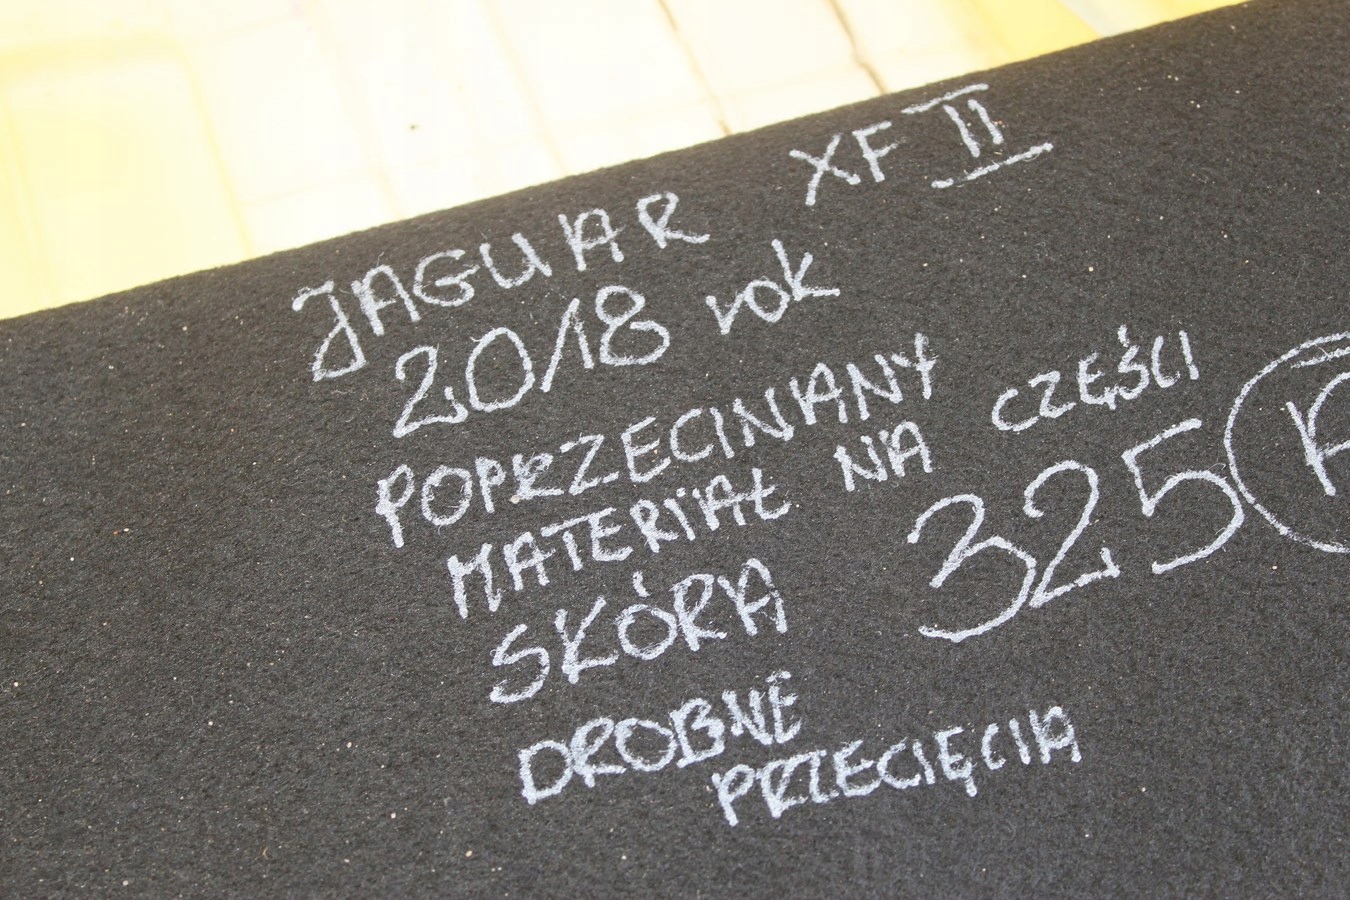 JAGUAR XF II
2018 rok
POPRZECINANY
MATERIAŁ NA CZĘŚCI
SKÓRA 325
DROBNE
PRZECIĘCIA